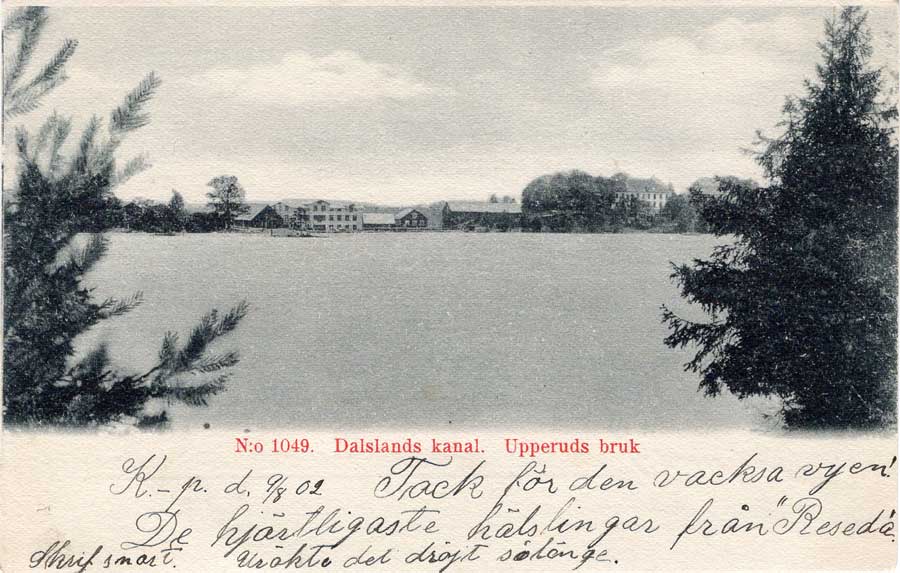 N:o 1049. Dalslands kanal. Upperuds bruk
K.-p. d. 9/8 02 Tack för den vacksa vyen!
De hjärtligaste hälslingar från "Reseda".
Skrif snart. Uräkta det dröjt sålänge.